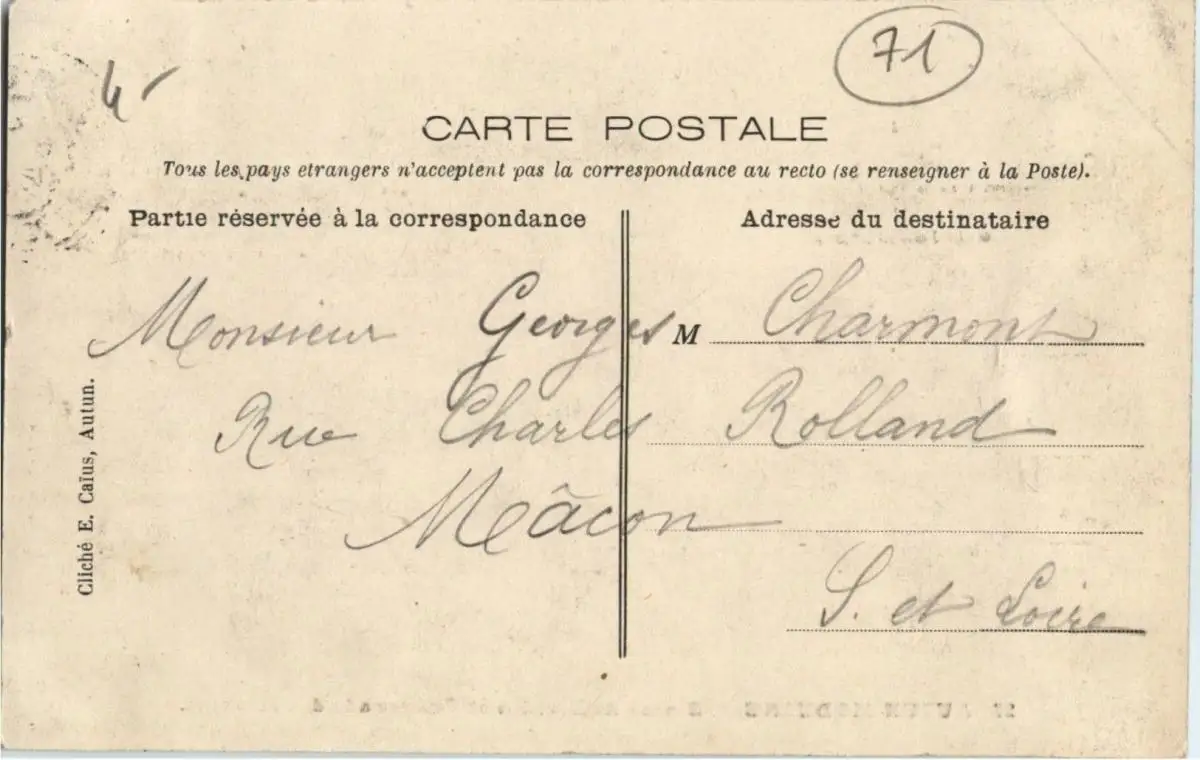 71
CARTE POSTALE
Tous les pays etrangers n'acceptent pas la correspondance au recto (se renseigner à la Poste).
Partie réservée à la correspondance
Adresse du destinataire
Monsieur Georges M Charmont
Rue Charles Rolland
Mâcon
S. et Loire
Cliché E. Caïus, Autun.